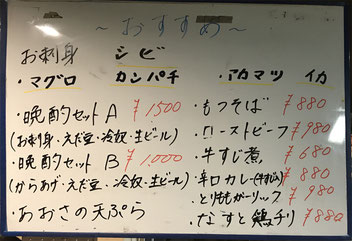 〜おすすめ〜
お刺身 シビ
・マグロ カンパチ ・アカマツ イカ
・晩酌セットA ¥1500
(お刺身・えだ豆・冷奴・生ビール)
・晩酌セットB ¥1,000
(からあげ・えだ豆・冷奴・生ビール)
・あおさの天ぷら
・もつそば ¥880
・ローストビーフ ¥980
・牛すじ煮 ¥680
・辛口カレー(牛すじ) ¥880
・とりももガーリック ¥980
・なすと鶏チリ ¥880